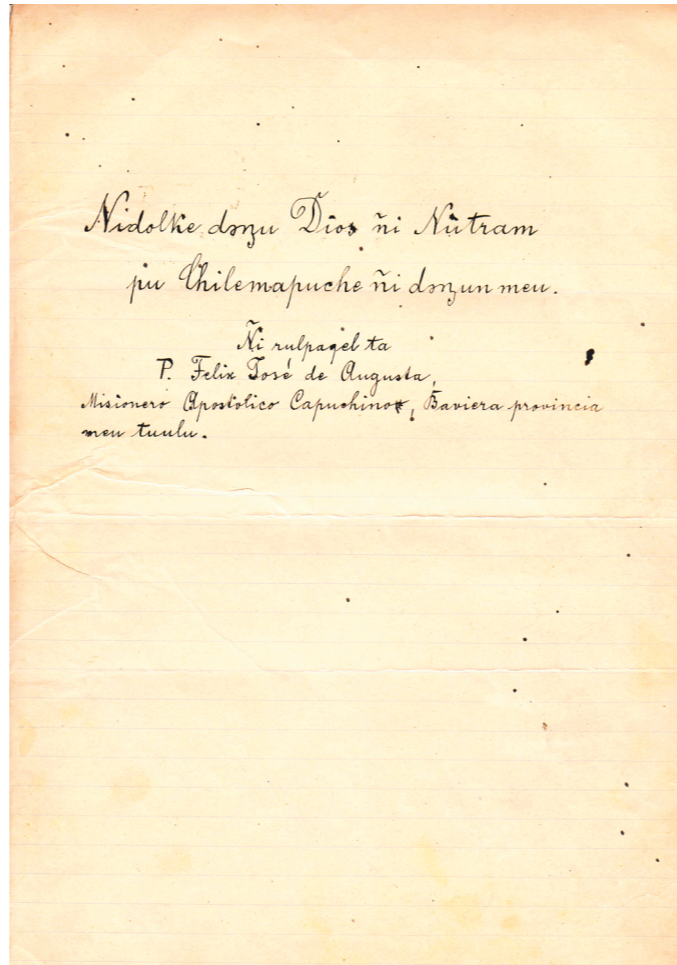 Nidolke dəŋu Dios ñi Nùtram
pu Chilemapuche ñi dəŋun meu.
Ñi rulpaqel ta
P. Felix José de Augusta,
Misionero Apostólico Capuchino, Baviera provincia
meu tuulu.